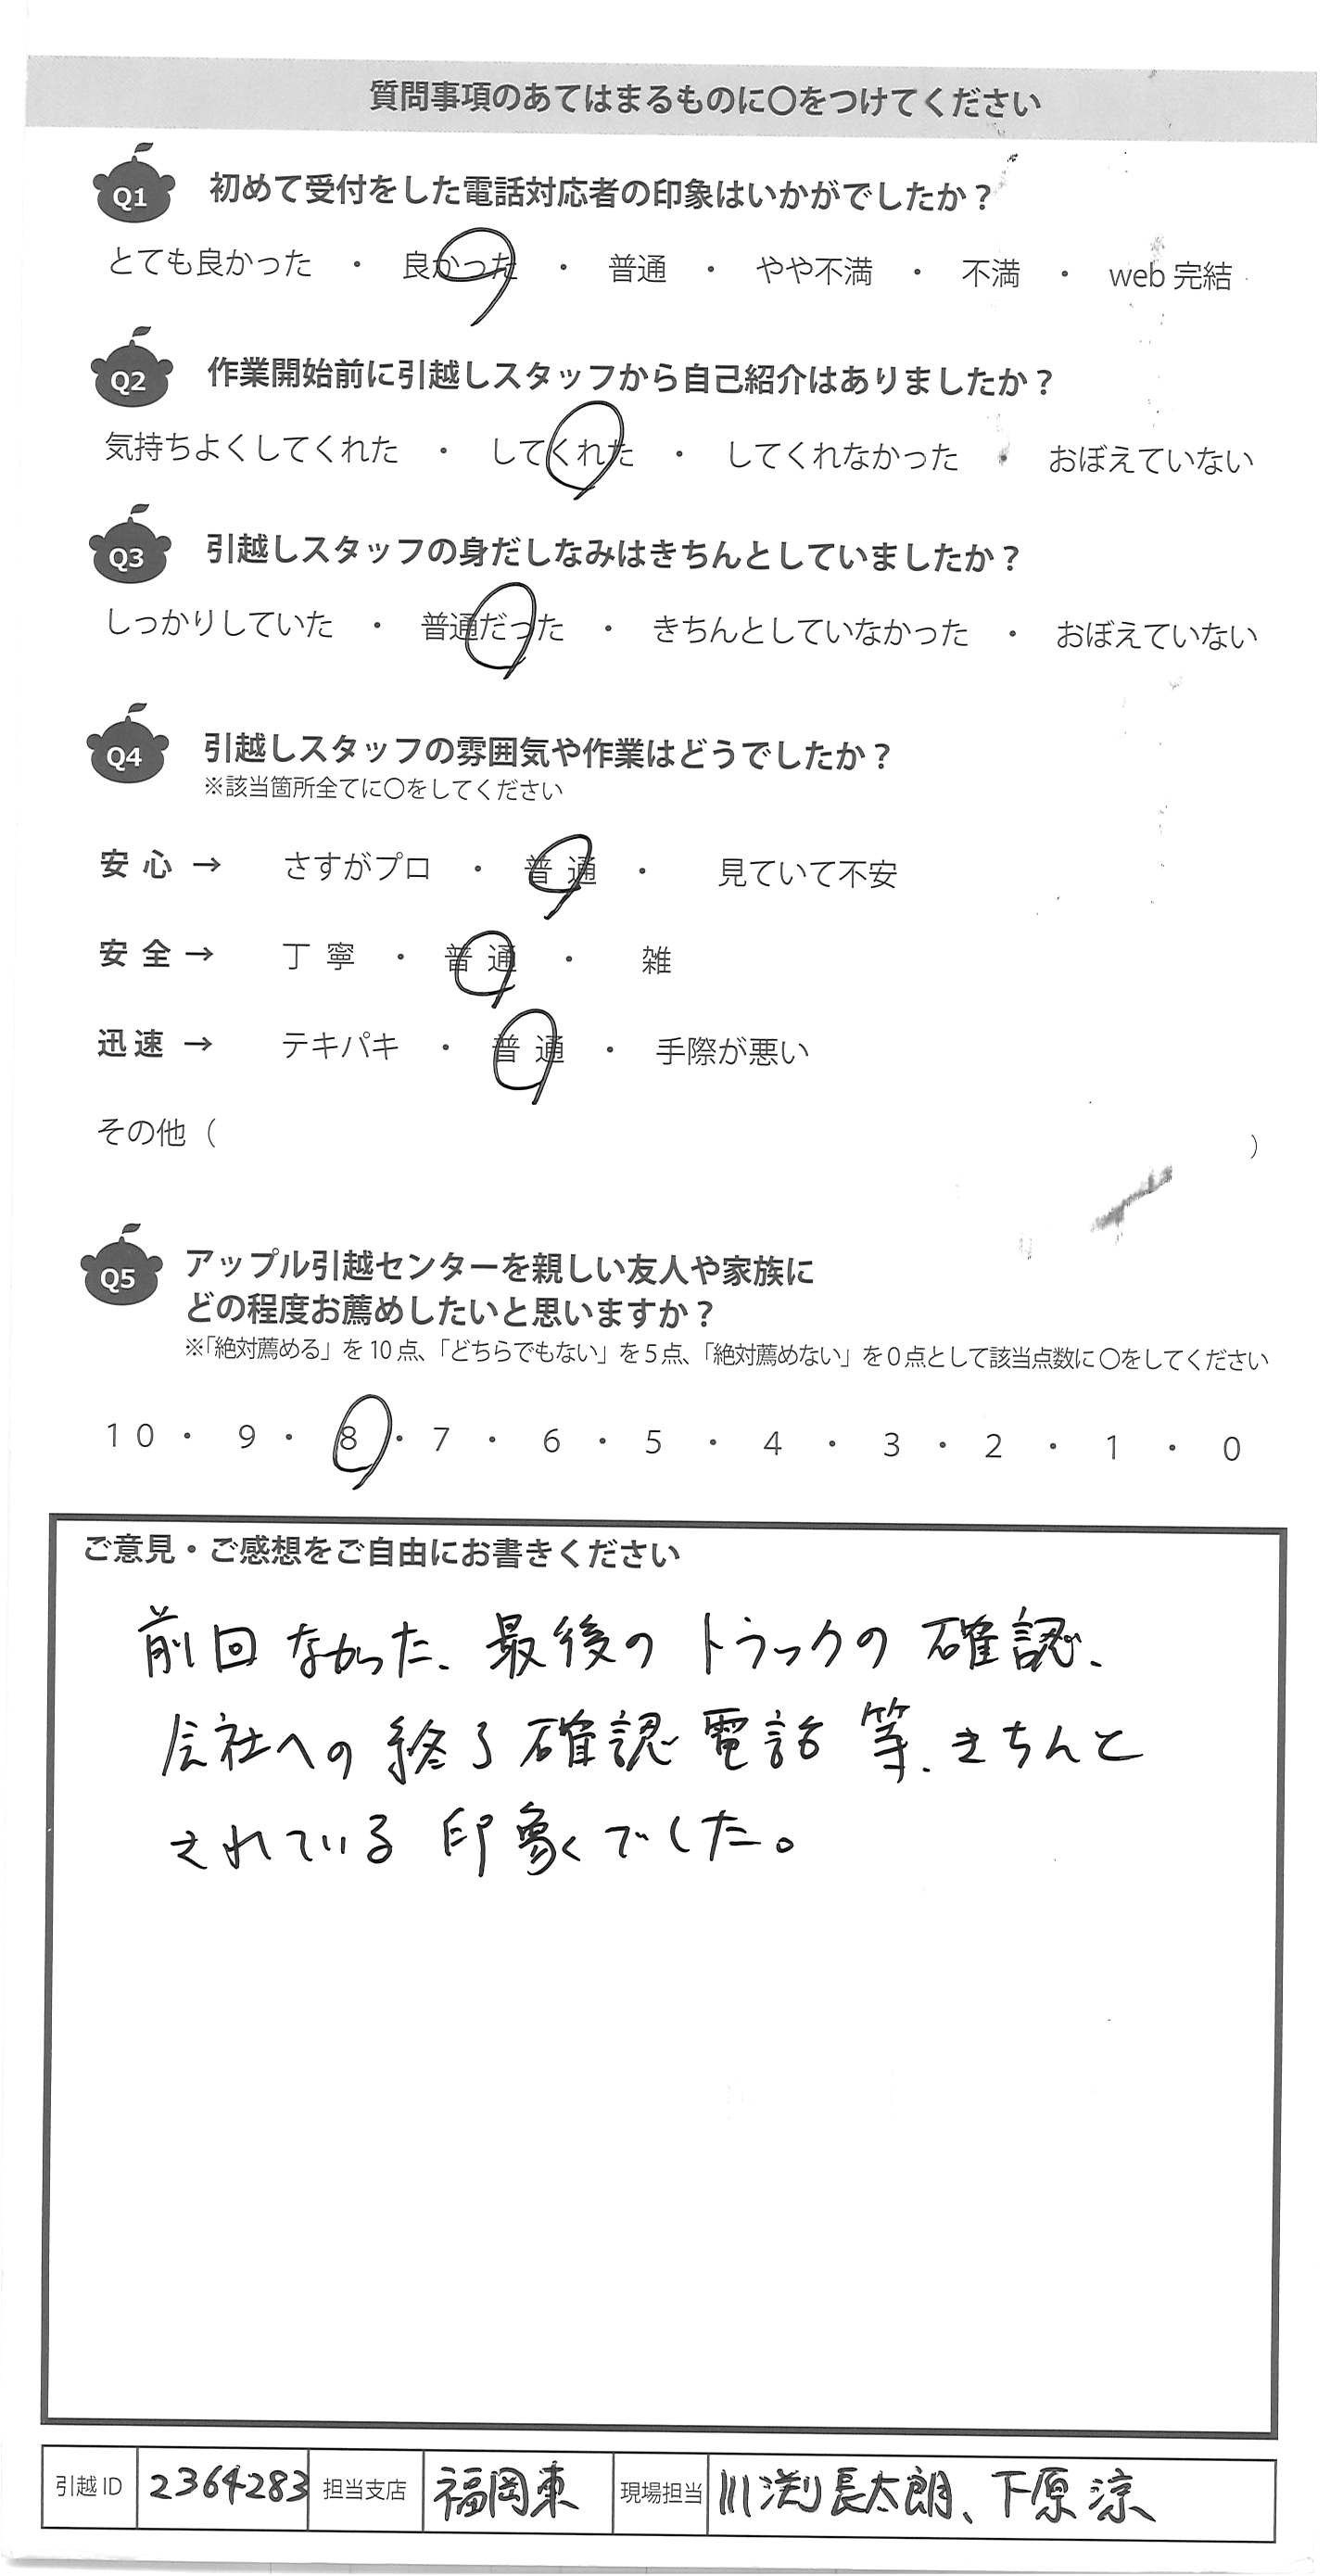 質問事項のあてはまるものに〇をつけてください
Q1 初めて受付をした電話対応者の印象はいかがでしたか？
とても良かった ・ 良かった ・ 普通 ・ やや不満 ・ 不満 ・ web完結
Q2 作業開始前に引越しスタッフから自己紹介はありましたか？
気持ちよくしてくれた ・ してくれた ・ してくれなかった ・ おぼえていない
Q3 引越しスタッフの身だしなみはきちんとしていましたか？
しっかりしていた ・ 普通だった ・ きちんとしていなかった ・ おぼえていない
Q4 引越しスタッフの雰囲気や作業はどうでしたか？
※該当箇所全てに〇をしてください
安心 → さすがプロ ・ 普通 ・ 見ていて不安
安全 → 丁寧 ・ 普通 ・ 雑
迅速 → テキパキ ・ 普通 ・ 手際が悪い
その他（ ）
Q5 アップル引越センターを親しい友人や家族に
どの程度お薦めしたいと思いますか？
※「絶対薦める」を10点、「どちらでもない」を5点、「絶対薦めない」を0点として該当点数に〇をしてください
10 ・ 9 ・ 8 ・ 7 ・ 6 ・ 5 ・ 4 ・ 3 ・ 2 ・ 1 ・ 0
ご意見・ご感想をご自由にお書きください
前回なかった、最後のトラックの確認、
会社への終了確認電話等、きちんと
されている印象でした。
引越ID 2364283 担当支店 福岡東 現場担当 川渕長太朗、下原涼